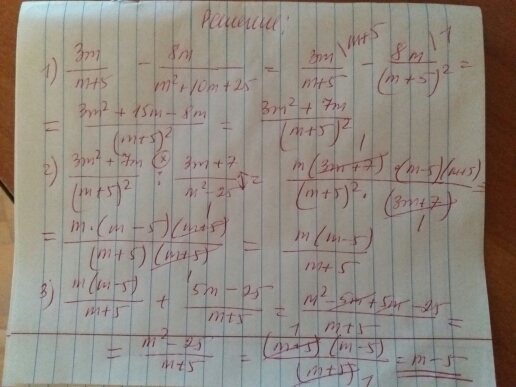 Решение:
1) 3m/(m+5) - 8m/(m²+10m+25) = 3m/(m+5) \m+5 - 8m/(m+5)² \1 =
= (3m²+15m-8m)/(m+5)² = (3m²+7m)/(m+5)²
2) (3m²+7m)/(m+5)² : (3m+7)/(m²-25) = m(3m+7) 1 · (m-5)(m+5)/((m+5)² · (3m+7) 1) =
= m·(m-5)(m+5) 1/((m+5)(m+5) 1) = m(m-5)/(m+5)
3) m(m-5)/(m+5) + (5m-25)/(m+5) = (m²-5m+5m-25)/(m+5) =
= (m²-25)/(m+5) = 1 (m+5)(m-5)/((m+5) 1) = m-5